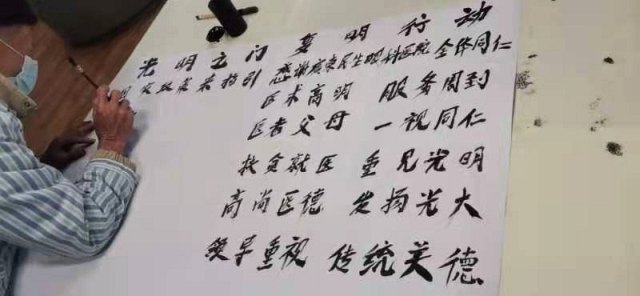 光明之门 复明行动
指引 感谢 民生眼科医院 全体同仁
医术高明 服务周到
医者父母 一视同仁
扶贫就医 重见光明
高尚医德 发扬光大
领导重视 传统美德